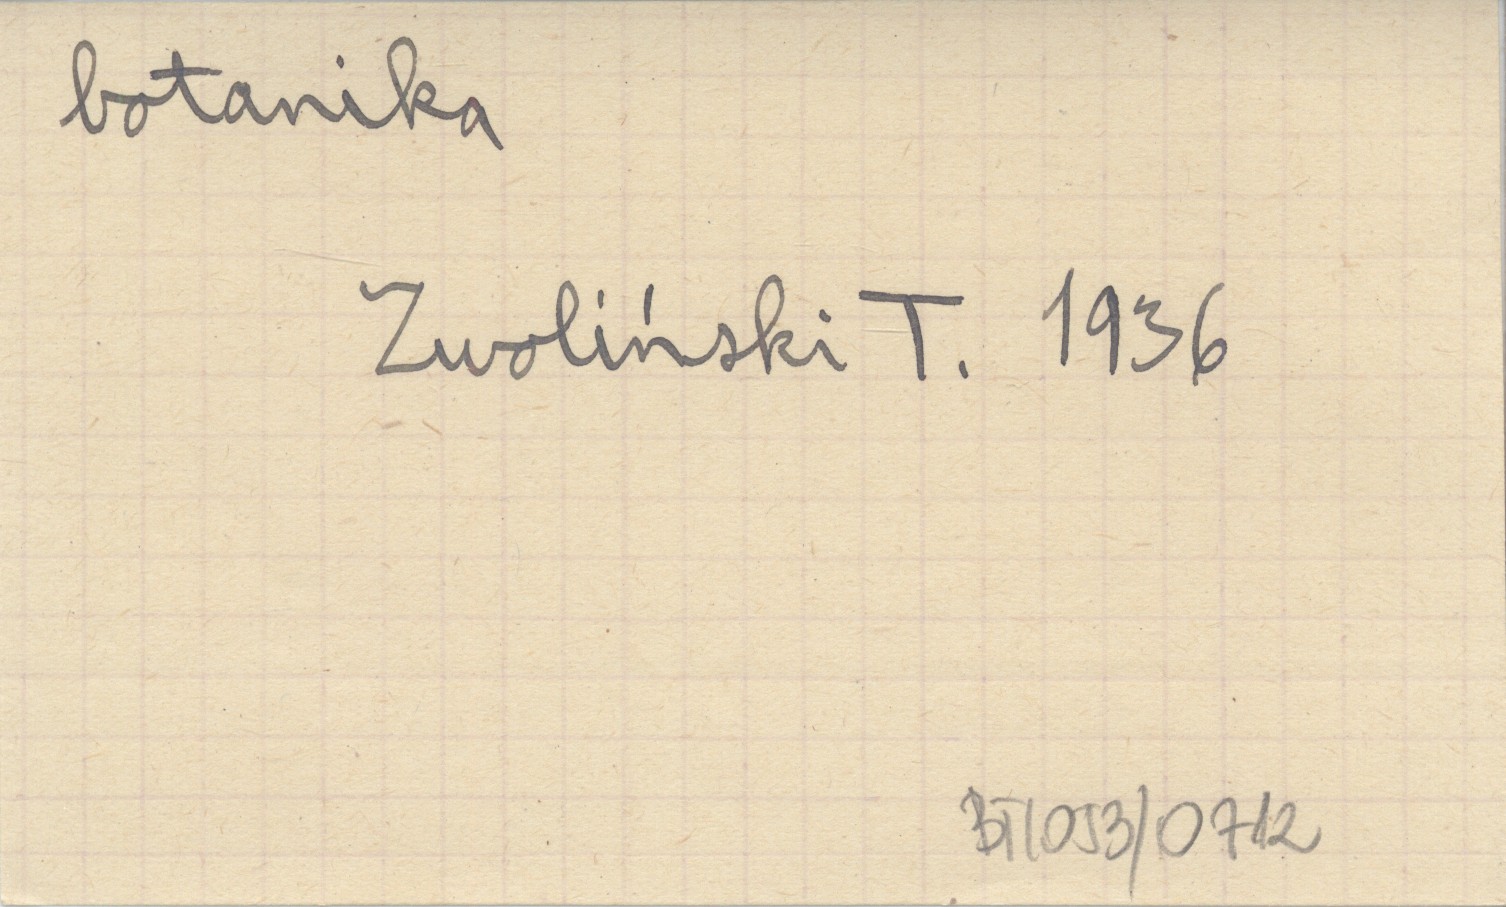 botanika
Zwoliński T. 1936
BT/053/0712